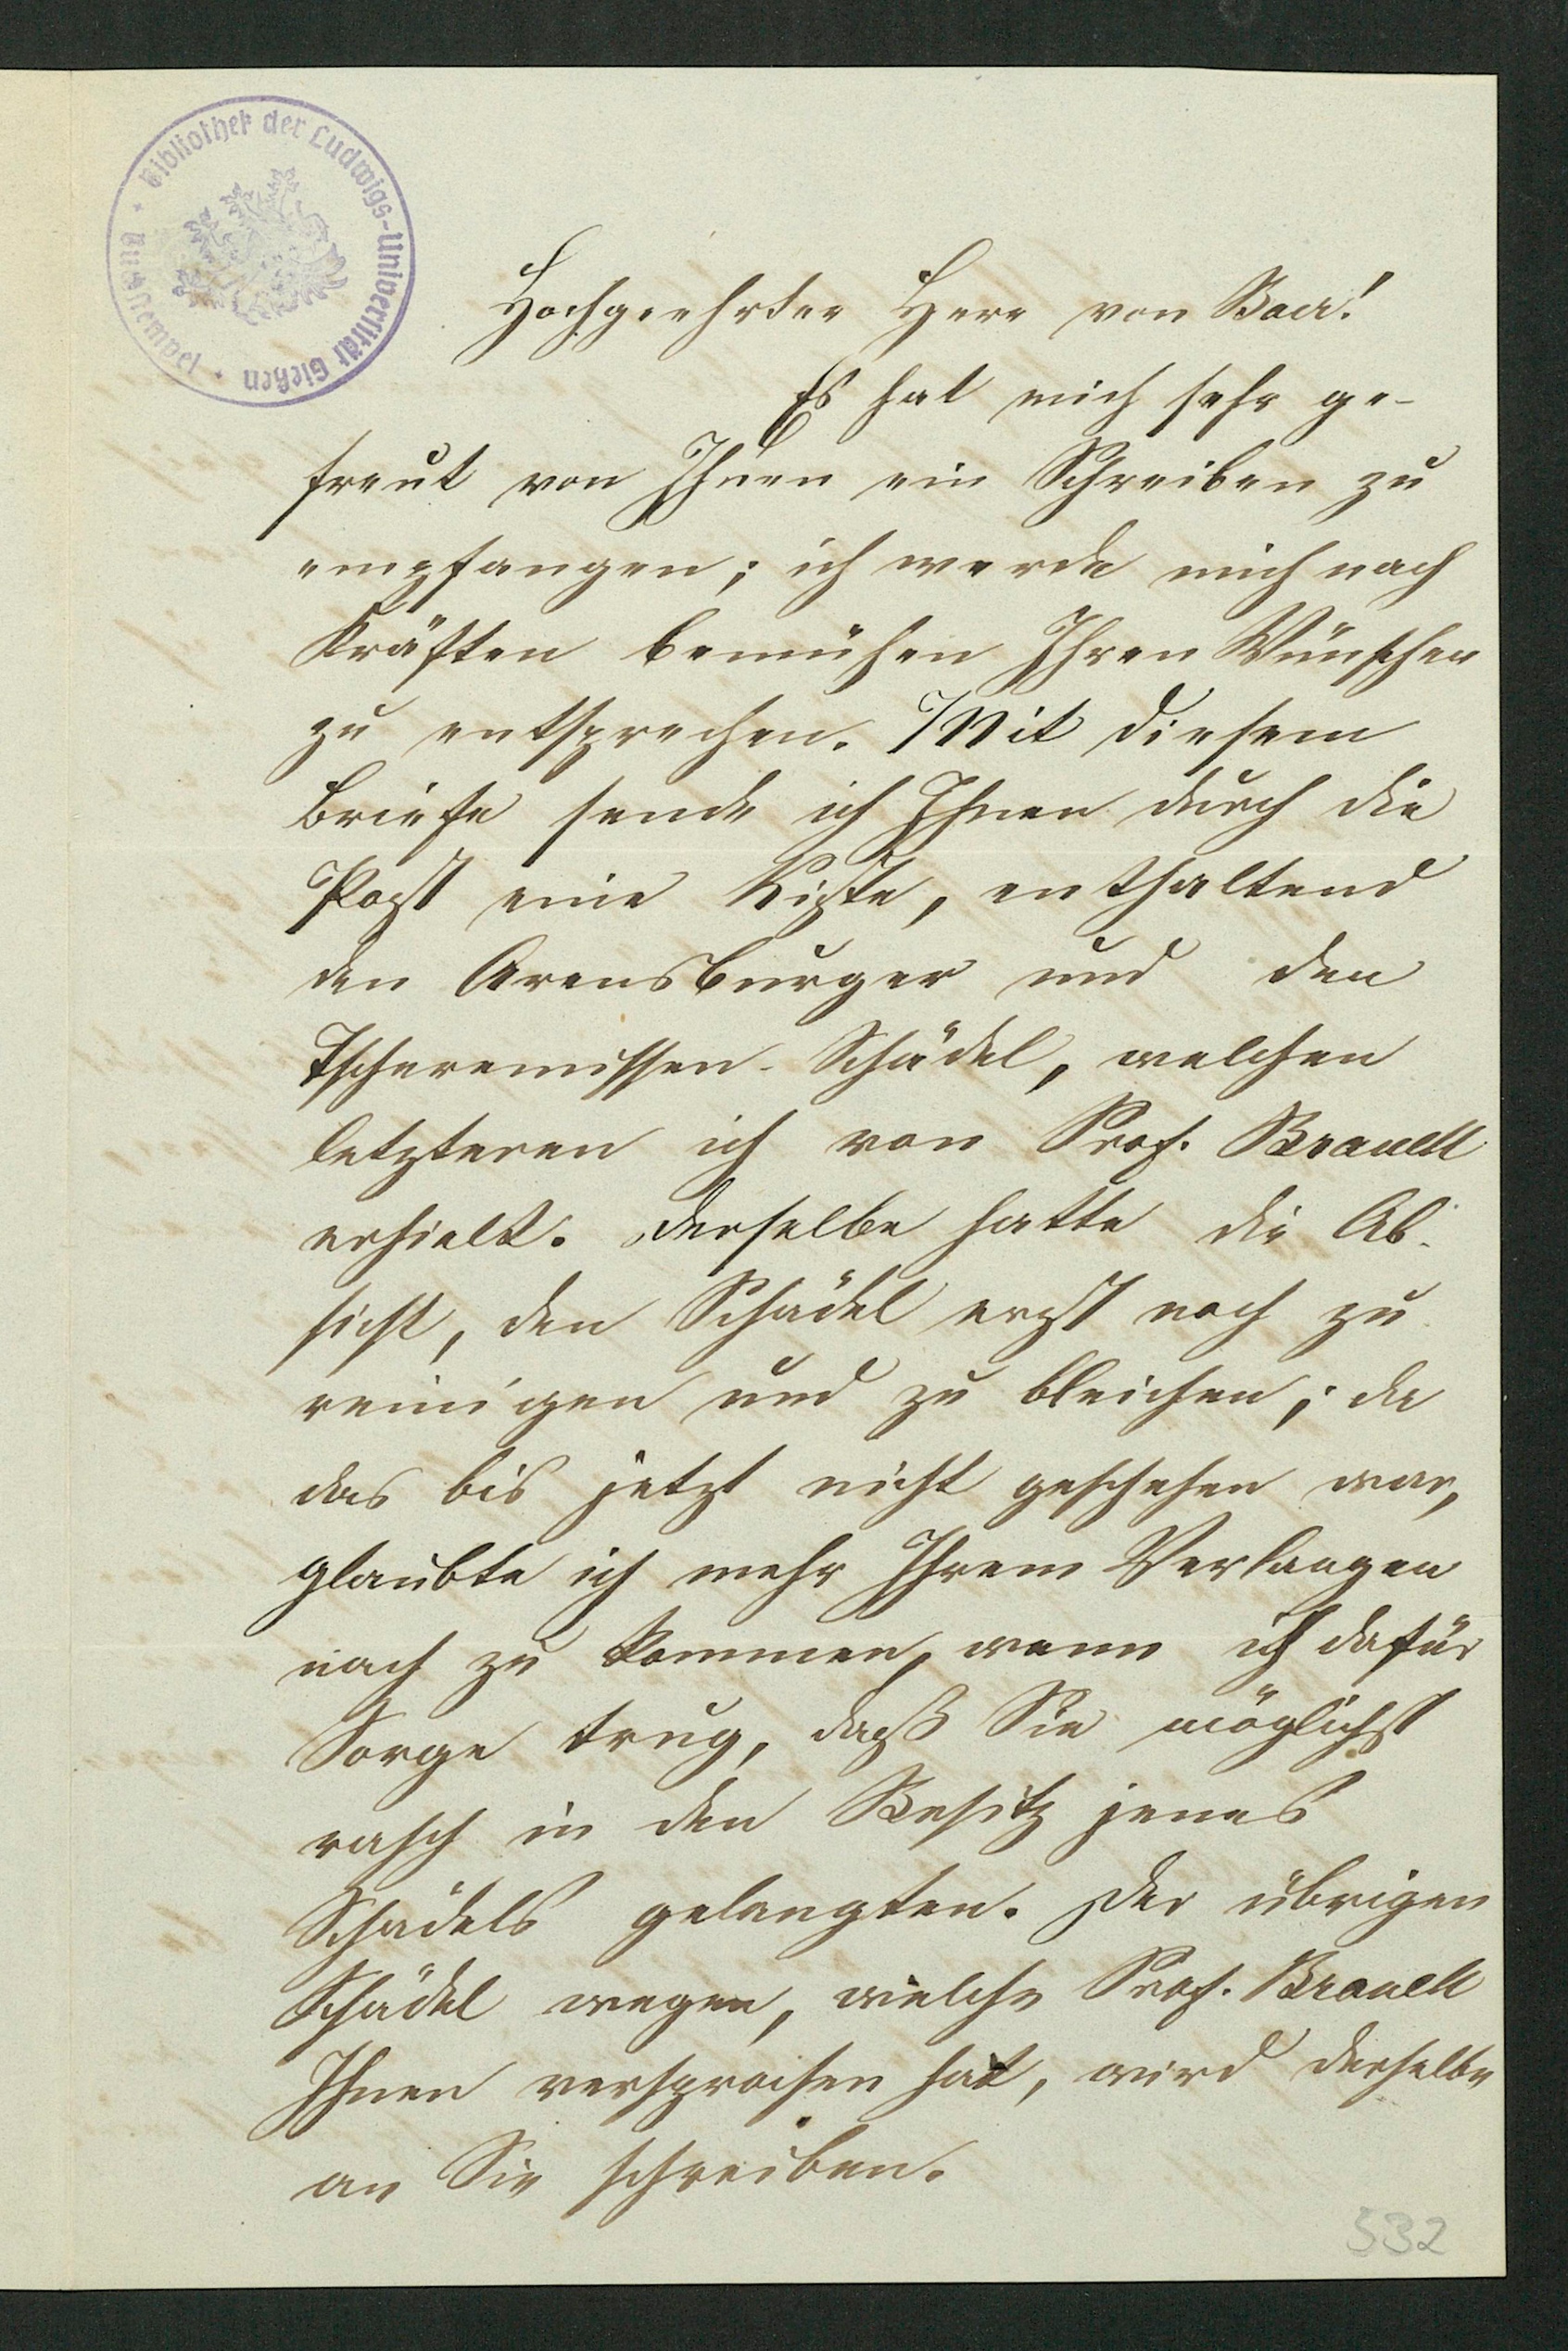 Bibliothek der Ludwigs-Universität Gießen
Buchstempel
Hochgeehrter Herr von Baer!
Es hat mich sehr ge-
freut von Ihnen ein Schreiben zu
empfangen; ich werde mich nach
Kräften bemühen Ihren Wünschen
zu entsprechen. Mit diesem
Briefe sende ich Ihnen durch die
Post eine Kiste, enthaltend
den Arensburger und den
Tscheremissen-Schädel, welchen
letzteren ich von Prof. Brauell
erhielt. Derselbe hatte die Ab-
sicht, den Schädel erst noch zu
reinigen und zu bleichen; da
das bis jetzt nicht geschehen war,
glaubte ich mehr Ihrem Verlangen
nach zu kommen, wenn ich dafür
Sorge trug, daß Sie möglichst
rasch in den Besitz jenes
Schädels gelangten. Der übrigen
Schädel wegen, welche Prof. Brauell
Ihnen versprochen hat, wird derselbe
an Sie schreiben.
532